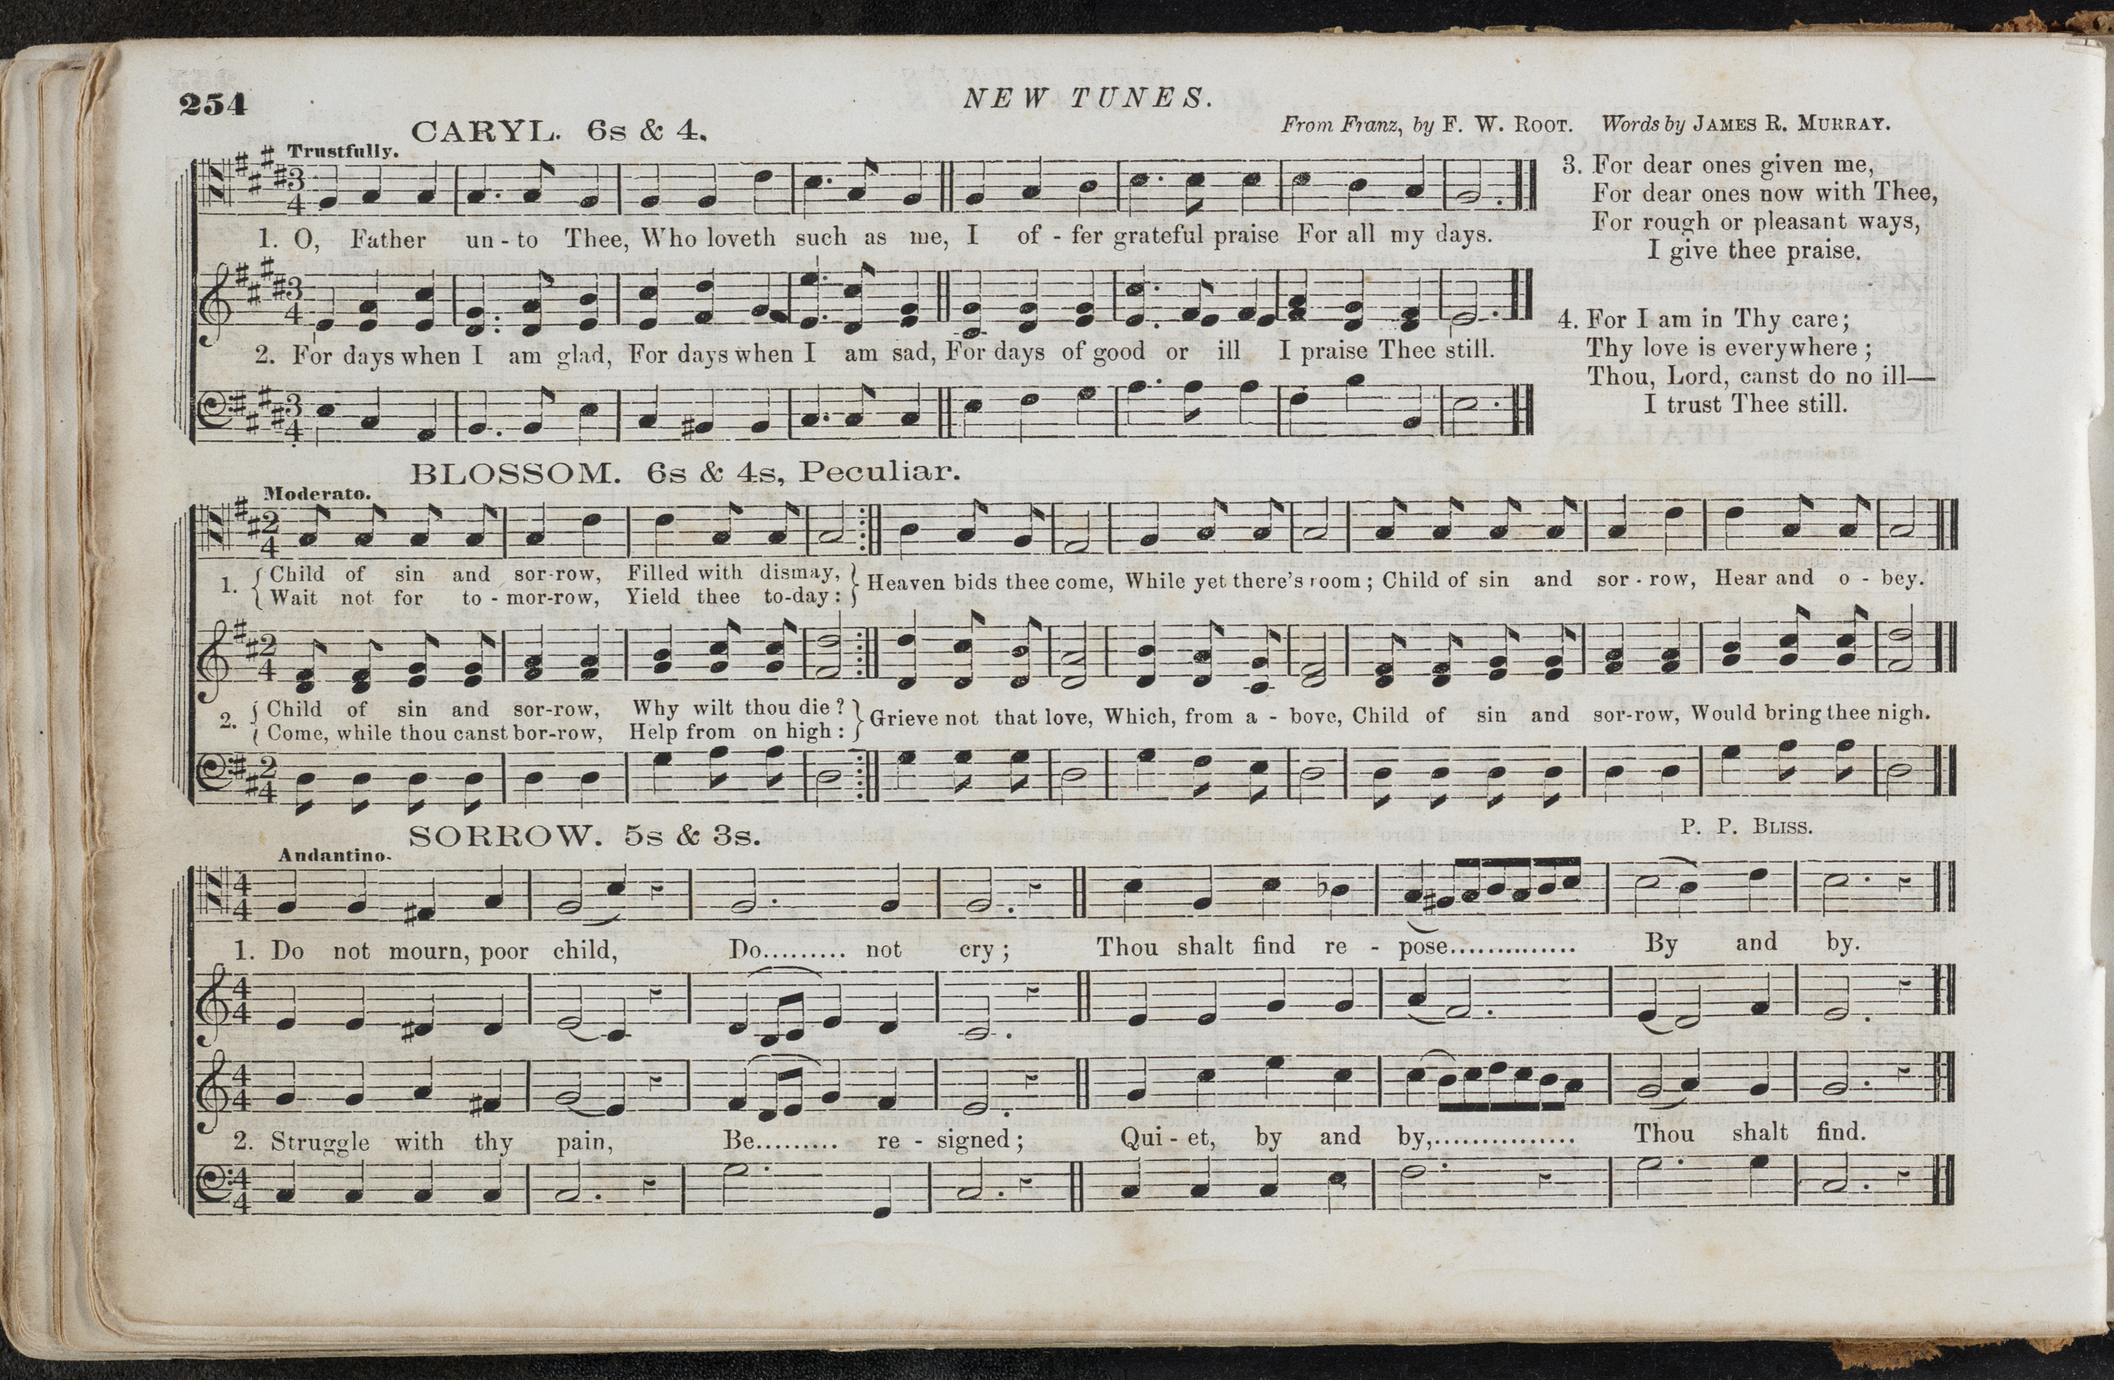 254
NEW TUNES.
CARYL. 6s & 4.
From Franz, by F. W. ROOT. Words by JAMES R. MURRAY.
Trustfully.
1. O, Father un - to Thee, Who loveth such as me, I of - fer grateful praise For all my days.
2. For days when I am glad, For days when I am sad, For days of good or ill I praise Thee still.
3. For dear ones given me,
For dear ones now with Thee,
For rough or pleasant ways,
I give thee praise.
4. For I am in Thy care;
Thy love is everywhere;
Thou, Lord, canst do no ill—
I trust Thee still.
BLOSSOM. 6s & 4s, Peculiar.
Moderato.
1. { Child of sin and sor-row, Filled with dismay, }
Wait not for to - mor-row, Yield thee to-day:
Heaven bids thee come, While yet there's room; Child of sin and sor - row, Hear and o - bey.
2. { Child of sin and sor-row, Why wilt thou die? }
Come, while thou canst bor-row, Help from on high:
Grieve not that love, Which, from a - bove, Child of sin and sor-row, Would bring thee nigh.
SORROW. 5s & 3s.
P. P. BLISS.
Andantino.
1. Do not mourn, poor child, Do......... not cry; Thou shalt find re - pose.............. By and by.
2. Struggle with thy pain, Be......... re - signed; Qui - et, by and by,............... Thou shalt find.